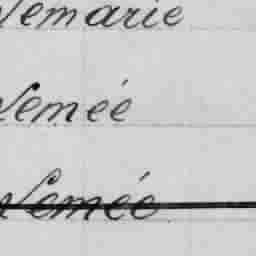 Nemarie
Nemée
Nemée